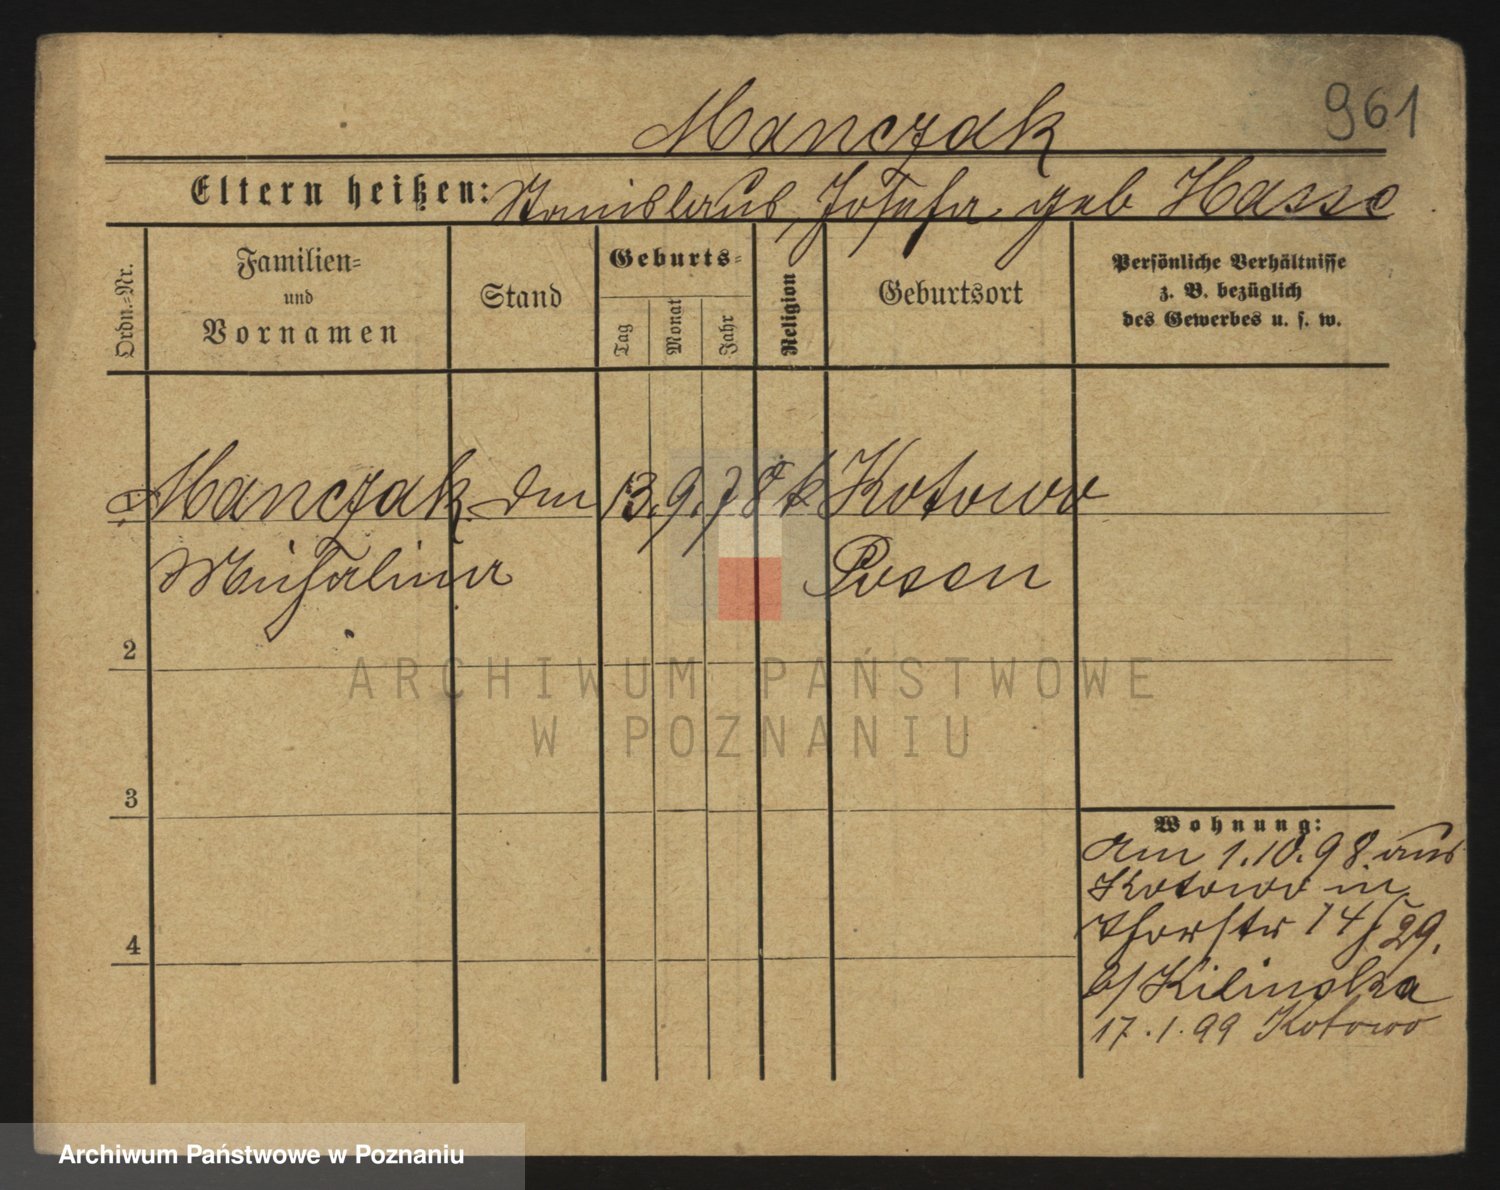 961
Manczak
Eltern heißen: Stanislaus, Josefa geb Hasse
Ordn.-Nr.
Familien- und Vornamen
Stand
Geburts-
Tag
Monat
Jahr
Religion
Geburtsort
Persönliche Verhältnisse
z. B. bezüglich
des Gewerbes u. s. w.
Manczak 13. 9. 78 k Kotowo
Posen
2
3
4
Wohnung:
Am 1.10.98. aus
Kotowo in
14 29.
b/ Kilinska
17.1.99 Kotowo
ARCHIWUM PAŃSTWOWE
W POZNANIU
Archiwum Państwowe w Poznaniu